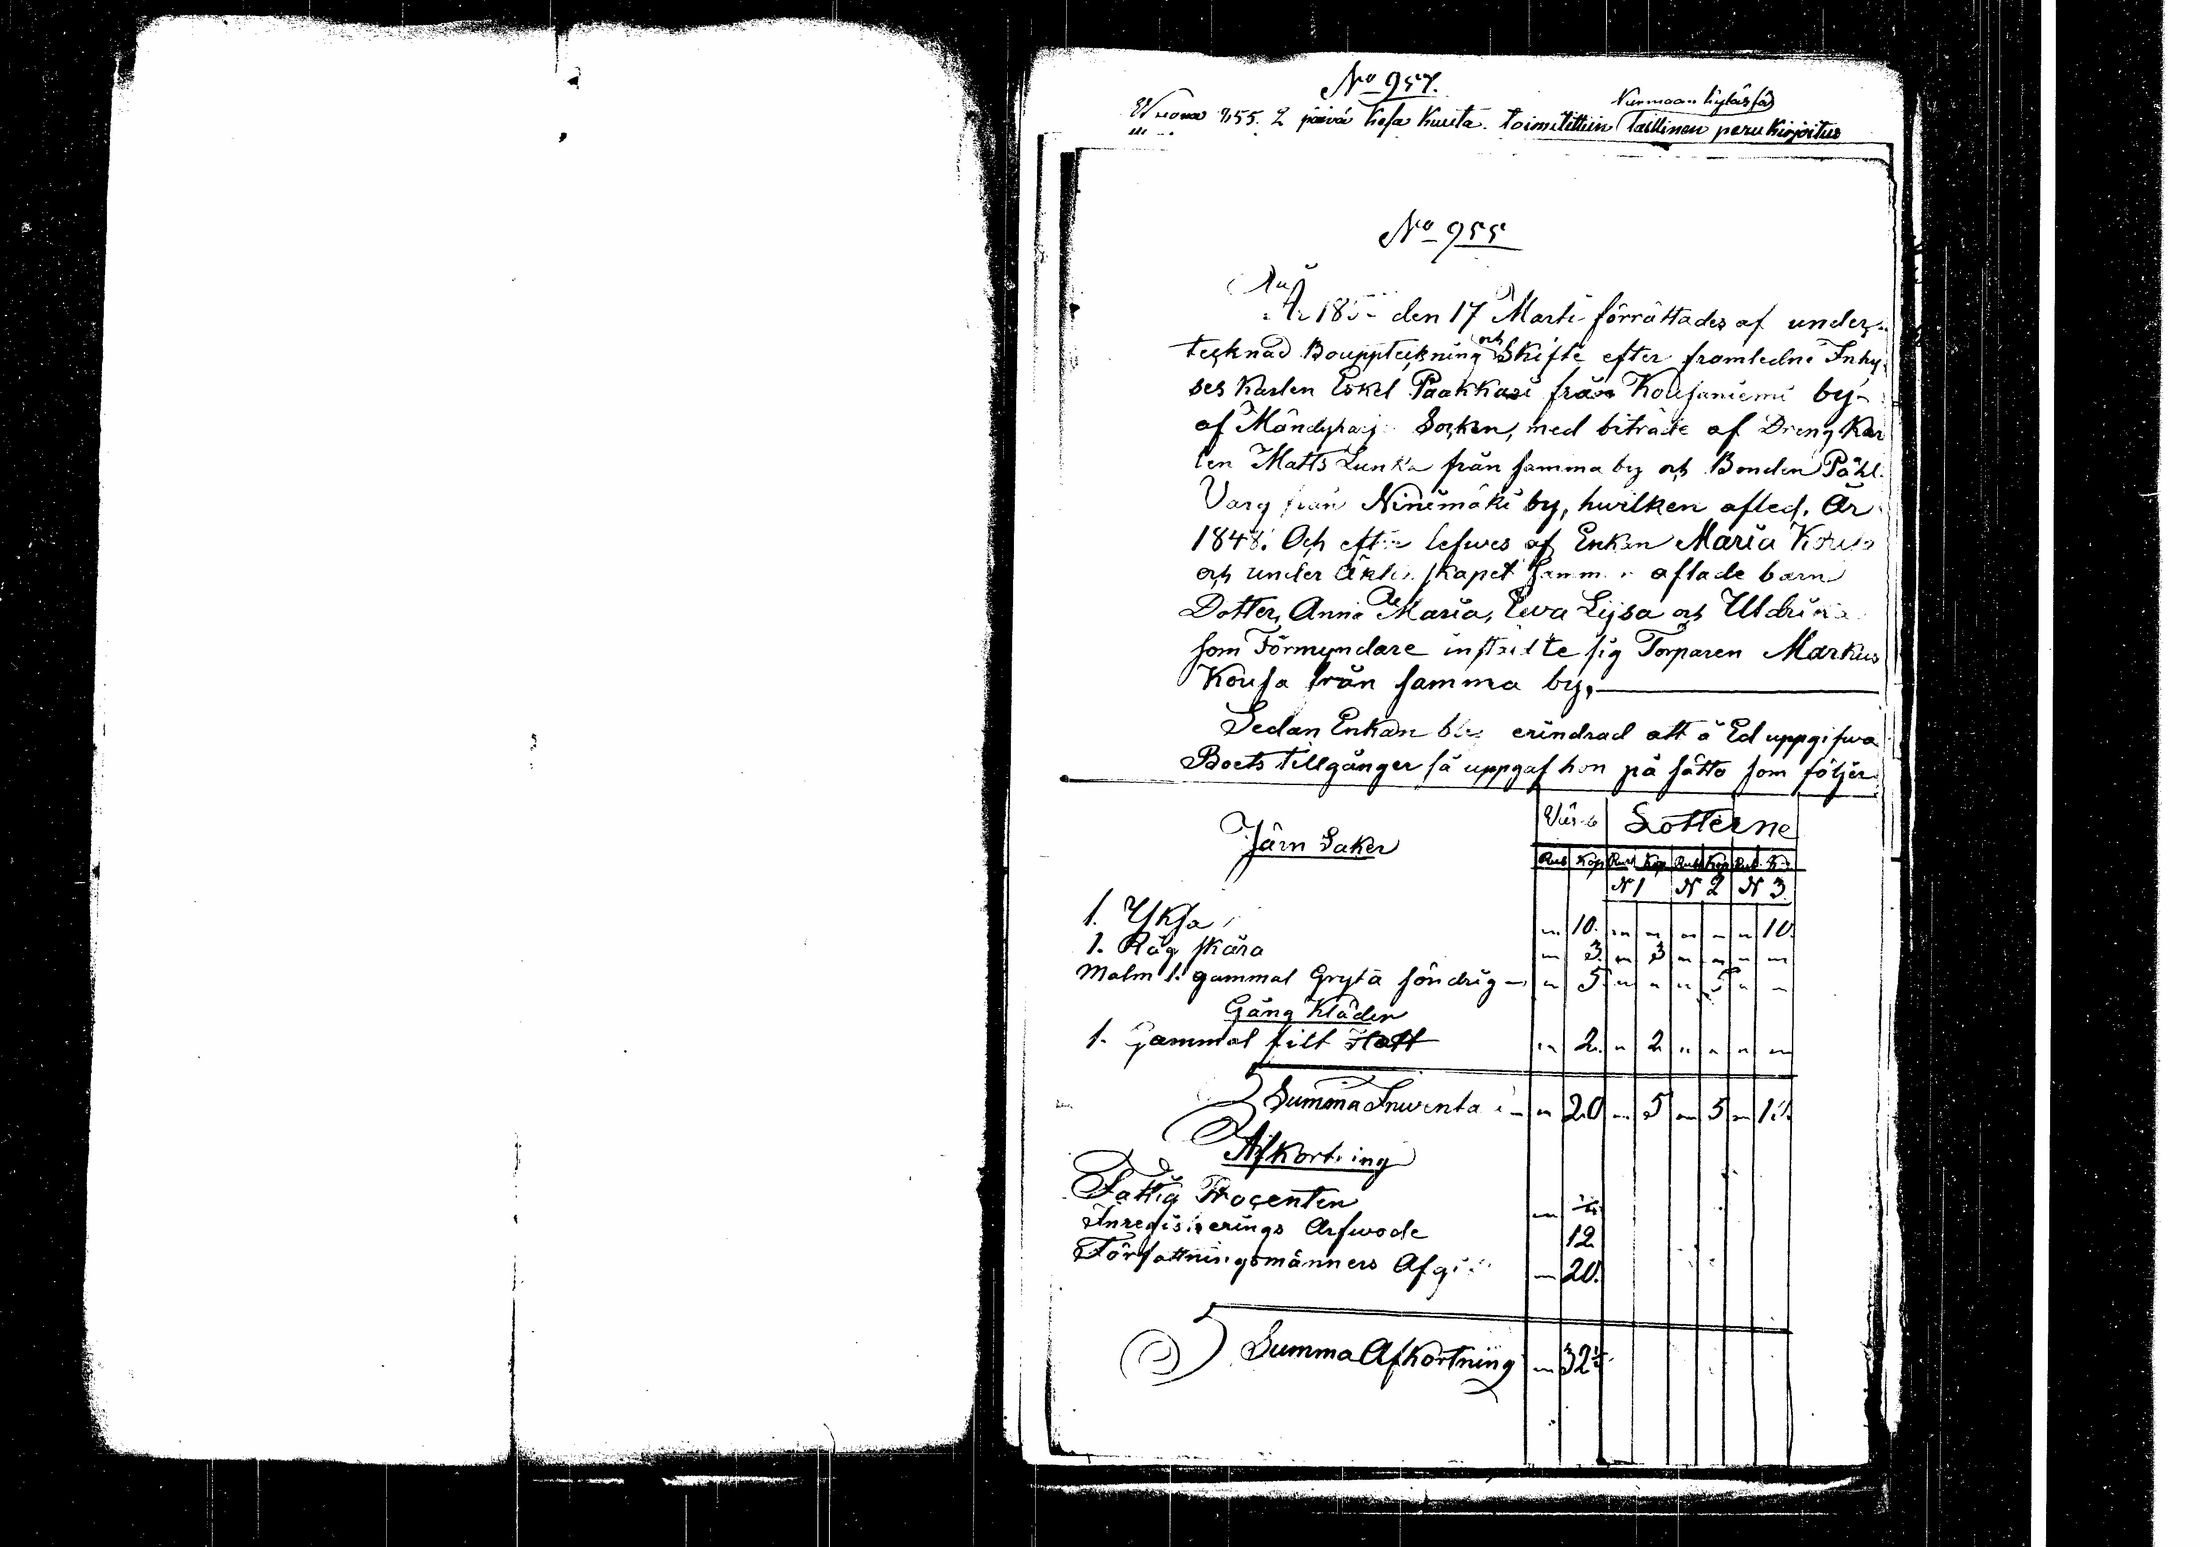 No 957.
Nurmaan kyläsſä
Wuona 855. 2 päivä Kesa Kuuta toimitettiin Laillinen peru Kirjoitus
No 955
År 185 den 17 Marti förrättades af under-
tecknad Bouppteckning och Skifte efter framledne Inhy-
ses Karlen Eskel Paakkari från Kousaniemi by
af Mändyharj Socken, med biträde af Dreng Kar
len Matts Lunka från samma by och Bonden Påhl
Varg från Ninimäki by, hwilken afled. År
1848. Och efter lefwes af Enkan Maria Kousa
och under äkten skapet samm aflade barn
Dotter, Anna Maria, Ewa Lijsa och Uldrika
som Förmyndare instälte sig Torparen Markus
Kousa från samma by,
Sedan Enkan ble erindrad att å Ed uppgifwa
Boets tillgånger så uppgaf hon på sätto som följer
Lotterne
Järn Saker
Rub Kop Rub Kop Rub Kop Rub K
N 1 N 2 N 3.
1. Yksa — 10. — — — — — 10.
1. Råg skära — 3. — 3 — — — —
Malm 1. gammal Gryta söndrig — — 5. — — — 5 — —
Gång Kläder
1. Gammal filt Hatt — 2. — 2 — — — —
Summa Inwenta — 20 — 5 — 5 — 10.
Afkortning
Fattig Procenten —
Inregistrerings Arfwode 12
Författningsmänners Afgi — 20.
Summa Afkortning — 32½